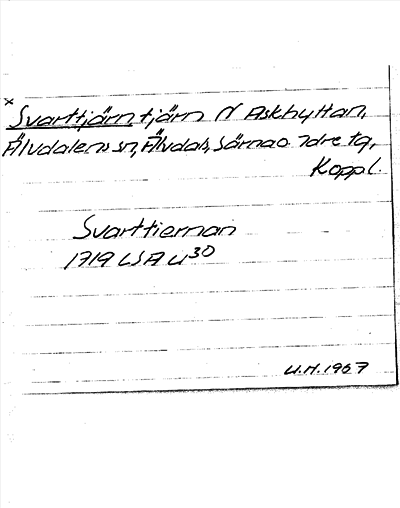 x
Svarttjärn tjärn N Askhyttan,
Älvdalens sn, Älvdals, Särna o. Idre tg,
Koppl.
Svarttiernan
1719 LSA U30
U.H. 1967